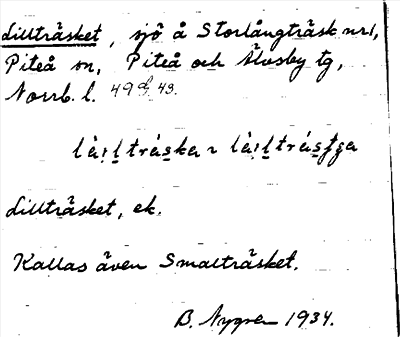 Lillträsket, sjö å Storlångträsk nr 1,
Piteå sn, Piteå och Älvsby tg,
Norrb. l. 49
Lillträsket, ek.
Kallas även Smalträsket.
B. Nygren 1934.